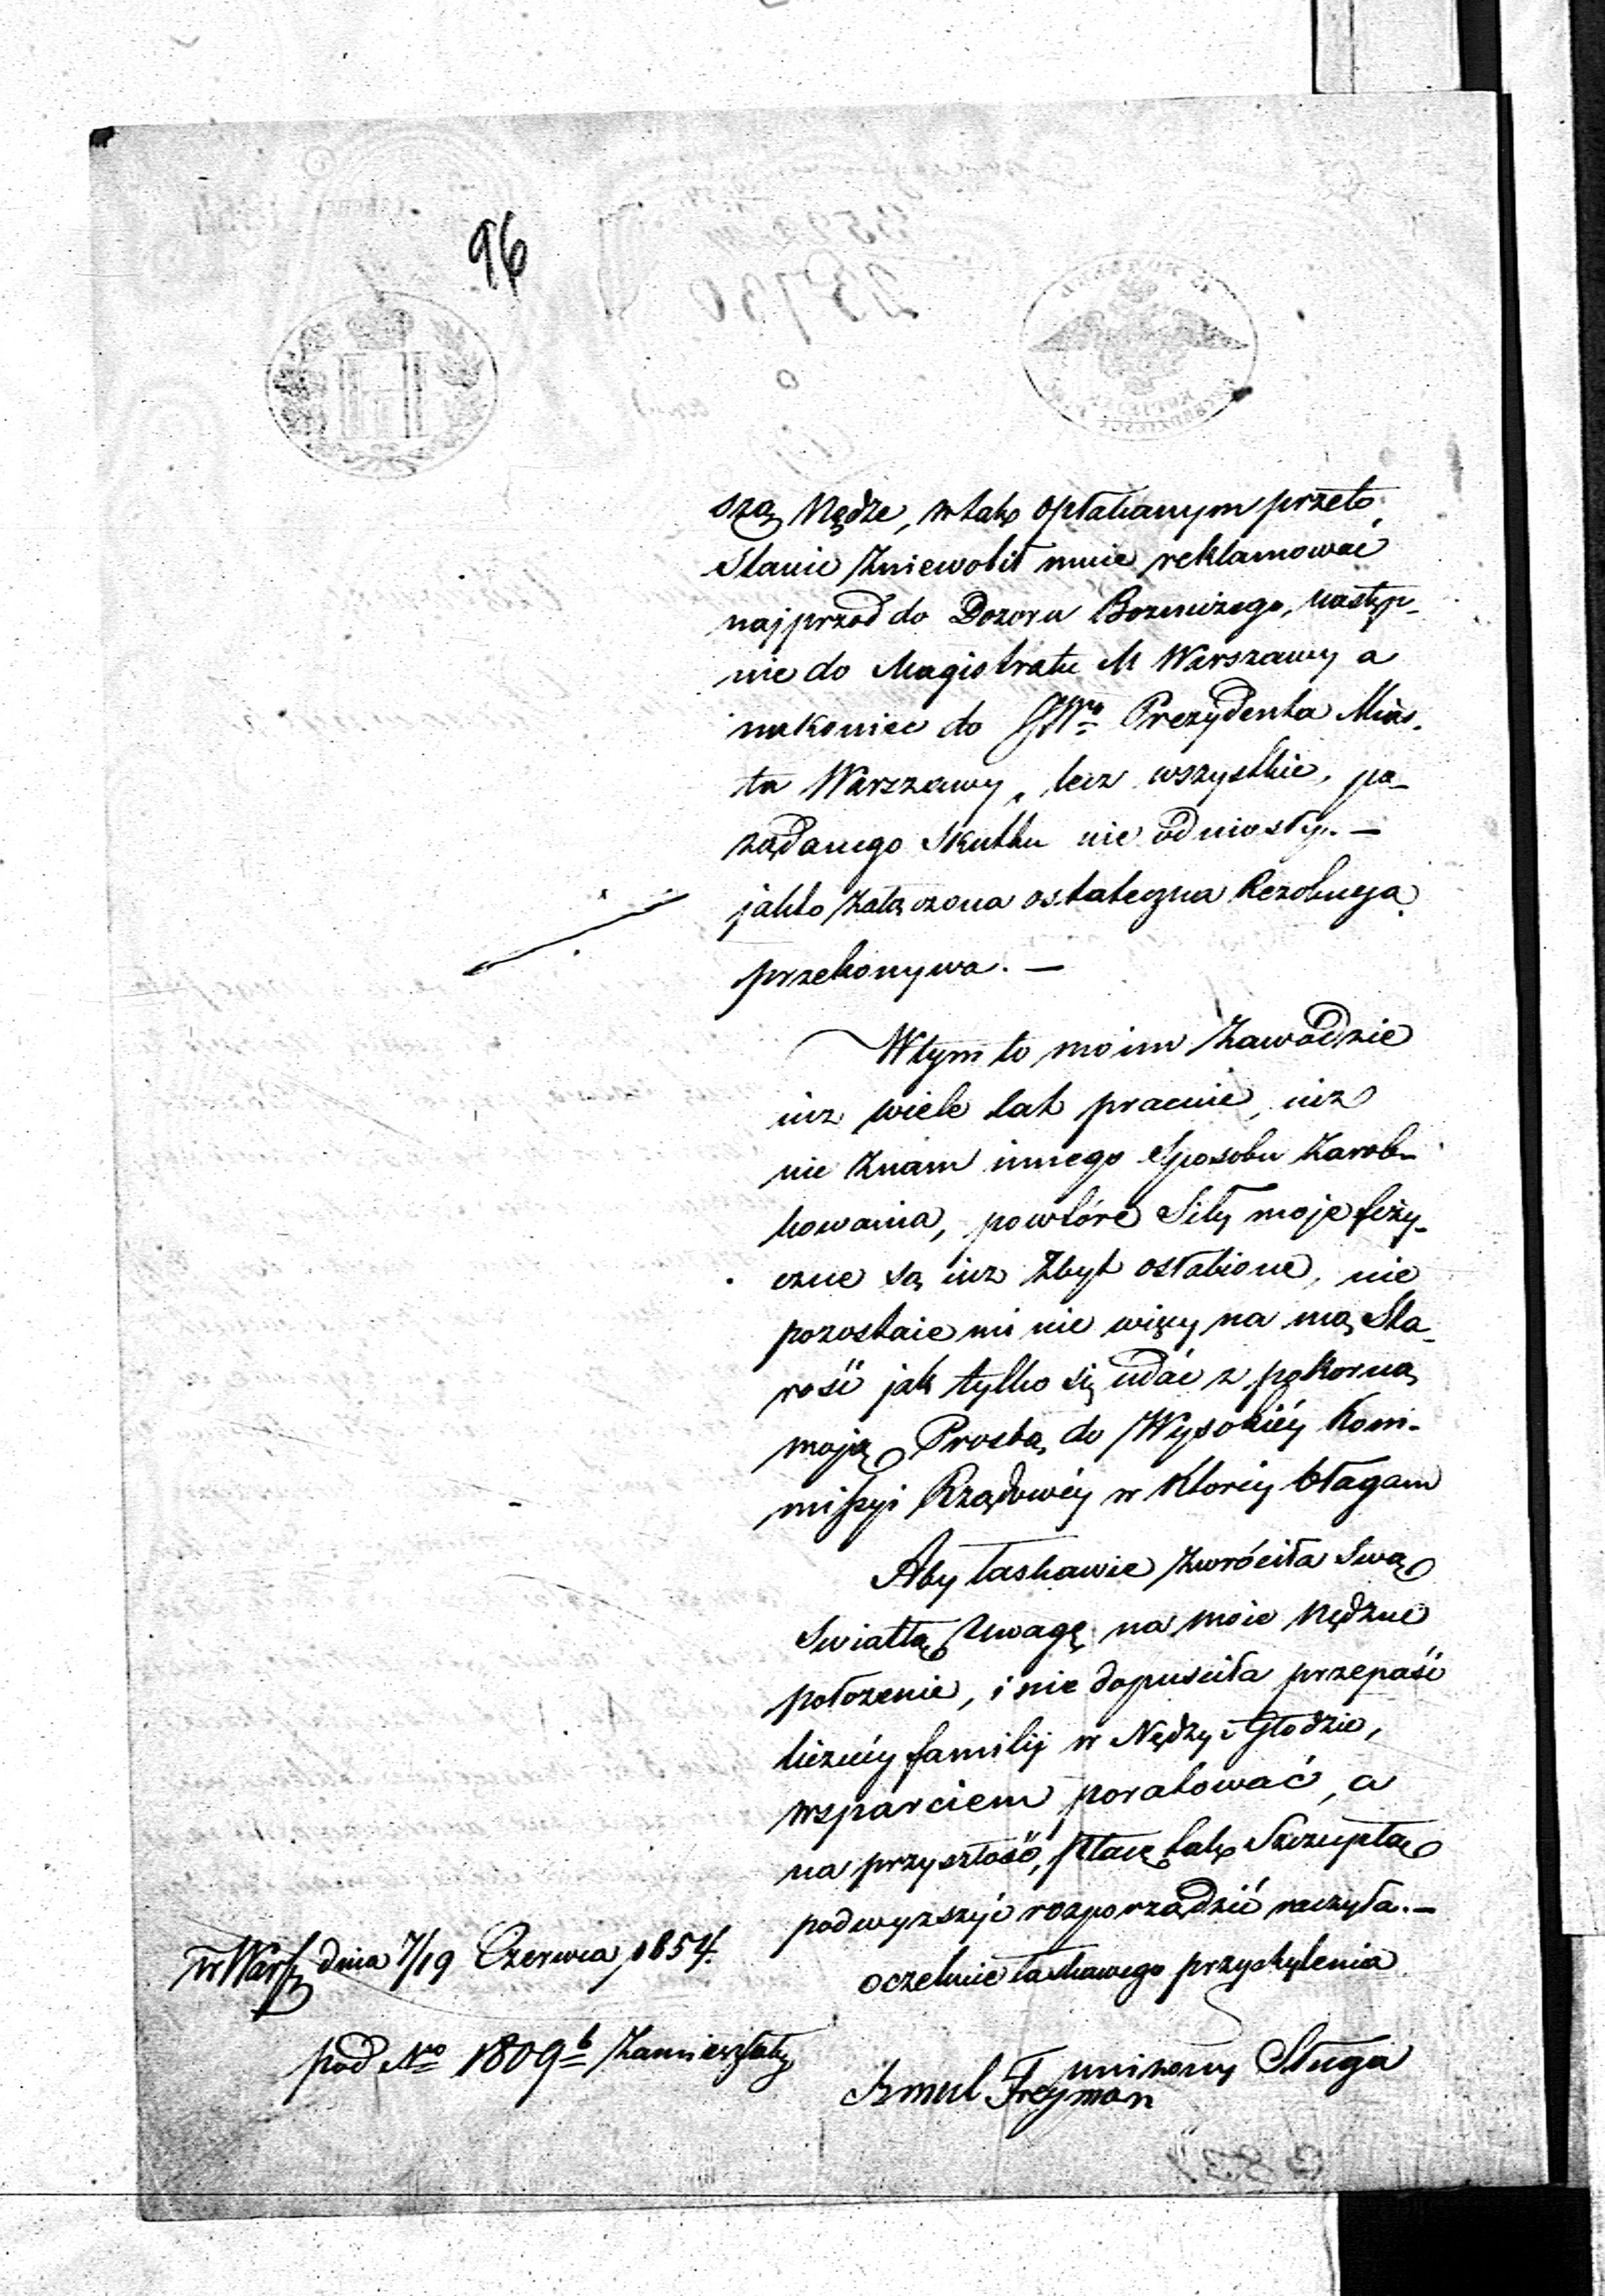 96
szą Nędze, w tak opłakanym przeto
Stanie Zniewolił mnie reklamować
najprzod do Dozoru Boznicznego, następ-
nie do Magistratu M Warszawy a
nakoniec do JWgo Prezydenta Mias-
ta Warszawy, lecz wszystkie, po-
żądanego Skutku nie odniosły. —
jak to Załączona ostateczna Rezolucya
przekonywa. —
W tym to moim Zawodzie
iuz wiele lat pracuie, niz
nie Znam innego Sposobu Zarob-
kowania, powtóre Siły moje fizy-
czne są iuz Zbyt osłabione, nie
pozostaie mi nic więcy na mą Sta-
rość jak tylko się udać z pokorną
moją Prosbą do Wysokiéy Kom-
missyi Rządowéy w Ktoréy błagam
Aby łaskawie Zwróciła Swą
Swiatłą Uwagę na moie Nędzne
położenie, i nie dopusciła przepaść
licznéy familij w Nędzy i Głodzie,
wsparciem poratować, a
na przyszłość, Płacę tak Szczupłą
podwyzszyć rozporządzić raczyła. —
oczekuie łaskawego przychylenia
w Warsz dnia 7/19 Czerwca 1854.
pod No 1809b Zamieszkały
unizony Sługa
Szmul Freyman